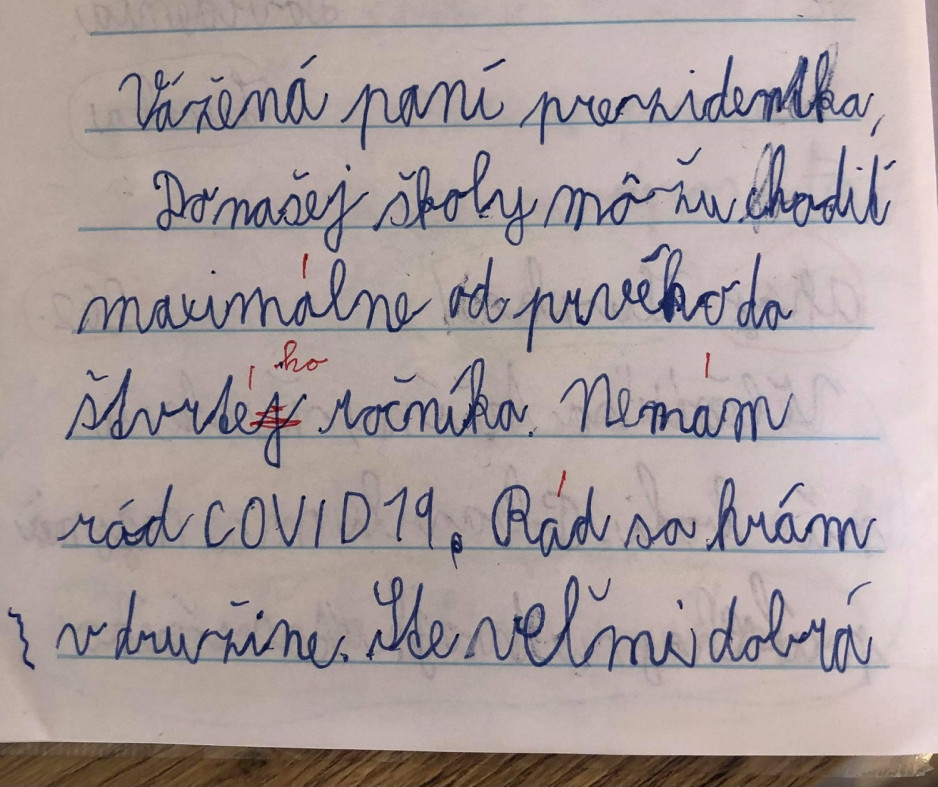 Vážená paní prezidentka,
Do našej školy môžu chodiť
maximálne od prvého do
štvrtého ročníka. Nemám
rád COVID19. Rád sa hrám
v družine. Ste veľmi dobrá